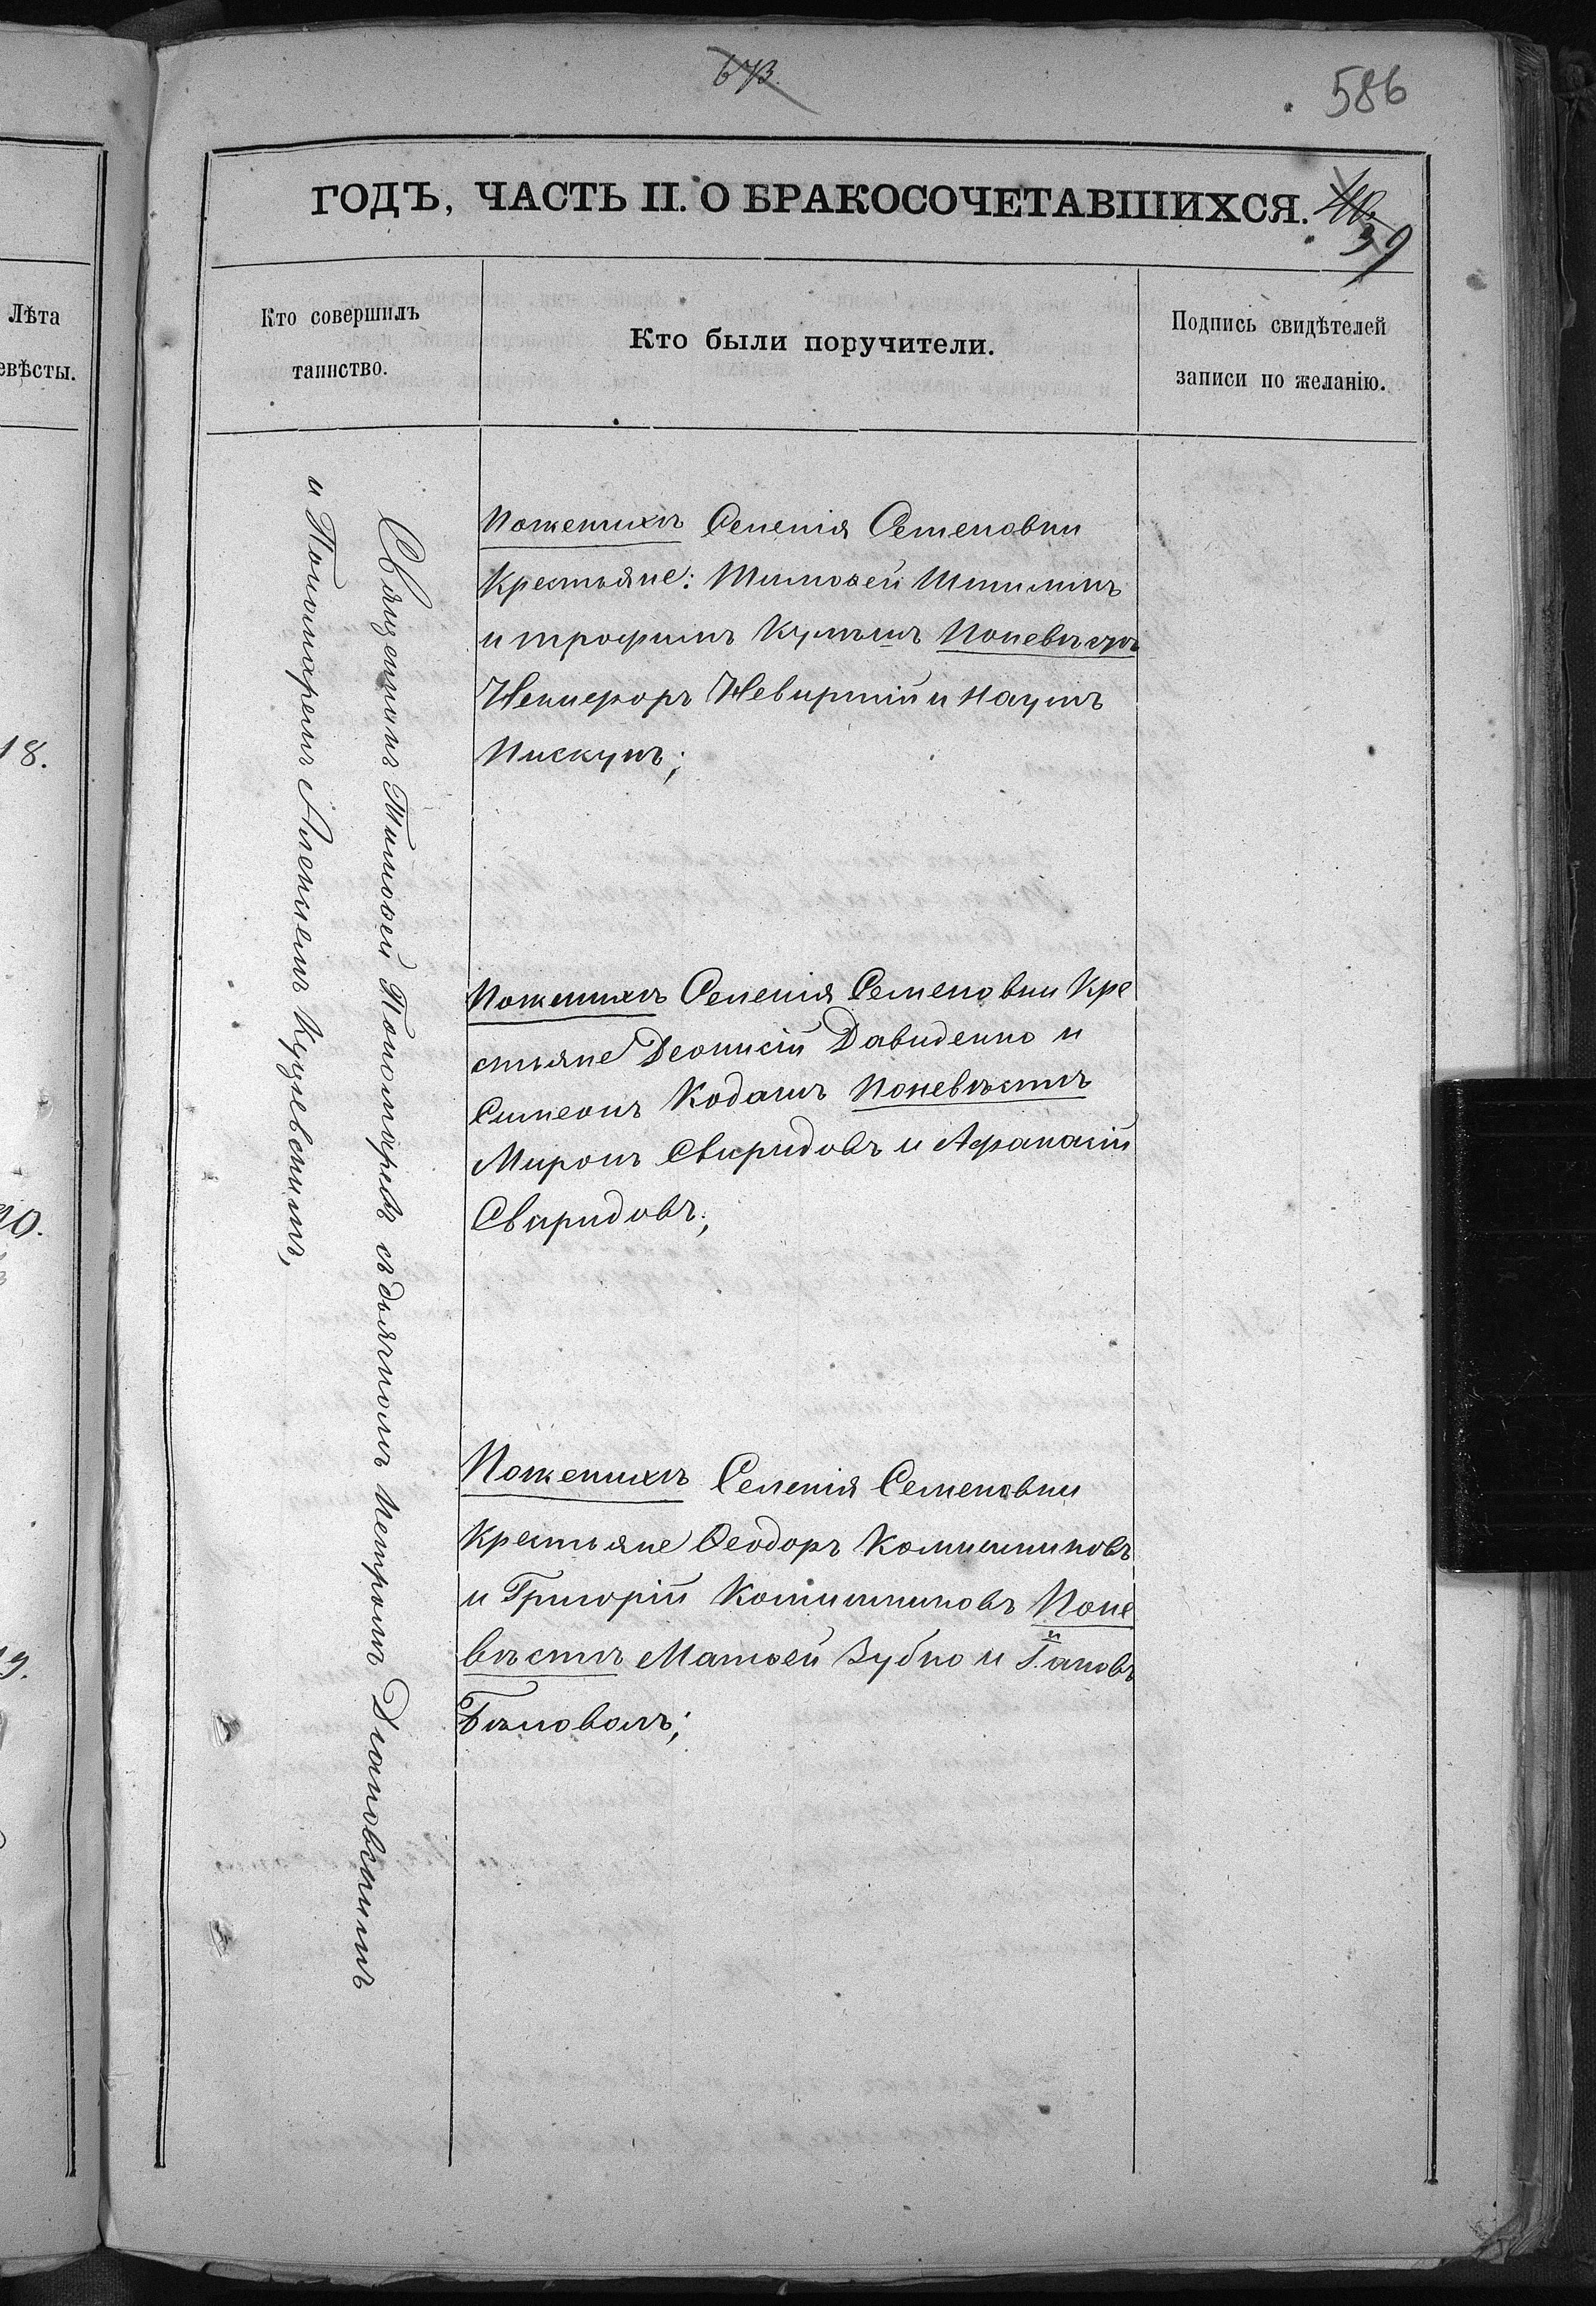 586
ГОДЪ, ЧАСТЬ II. О БРАКОСОЧЕТАВШИХСЯ.
39
Лѣта
евѣсты.
Кто совершилъ
таинство.
Кто были поручители.
Подпись свидѣтелей
записи по желанію.
18.
Священникъ Тимоѳей Пономаревъ съ дьячкомъ Петромъ Діановскимъ
и Пономаремъ Алексѣемъ
Поженихѣ Селенія Семеновки
Крестьяне: Тимоѳей
и трофимъ Поневѣстѣ
Никифоръ и Наумъ
Пискунъ;
Поженихѣ Селенія Семеновки Кре
стьяне Деонисій Давиденко и
Симеонъ Кодашъ Поневѣстѣ
Миронъ Свиридовъ и Афанасій
Свиридовъ;
Поженихѣ Селенія Семеновки
Крестьяне Ѳеодоръ
и Григорій Поне
вѣстѣ Матѳей Зубко и Іаковъ